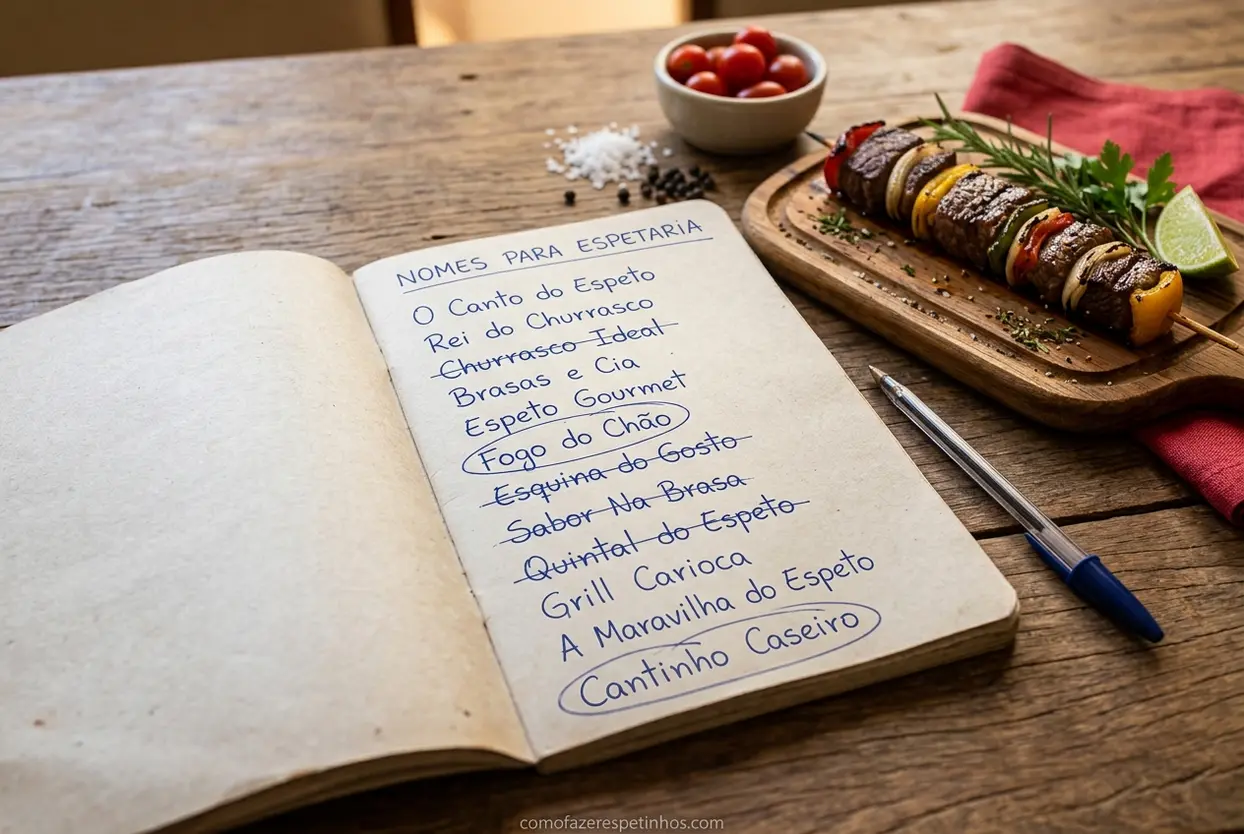 NOMES PARA ESPETARIA
O Canto do Espeto
Rei do Churrasco
Churrasco Ideal
Brasas e Cia
Espeto Gourmet
Fogo do Chão
Esquina do Gosto
Sabor Na Brasa
Quintal do Espeto
Grill Carioca
A Maravilha do Espeto
Cantinho Caseiro
comofazerespetinhos.com